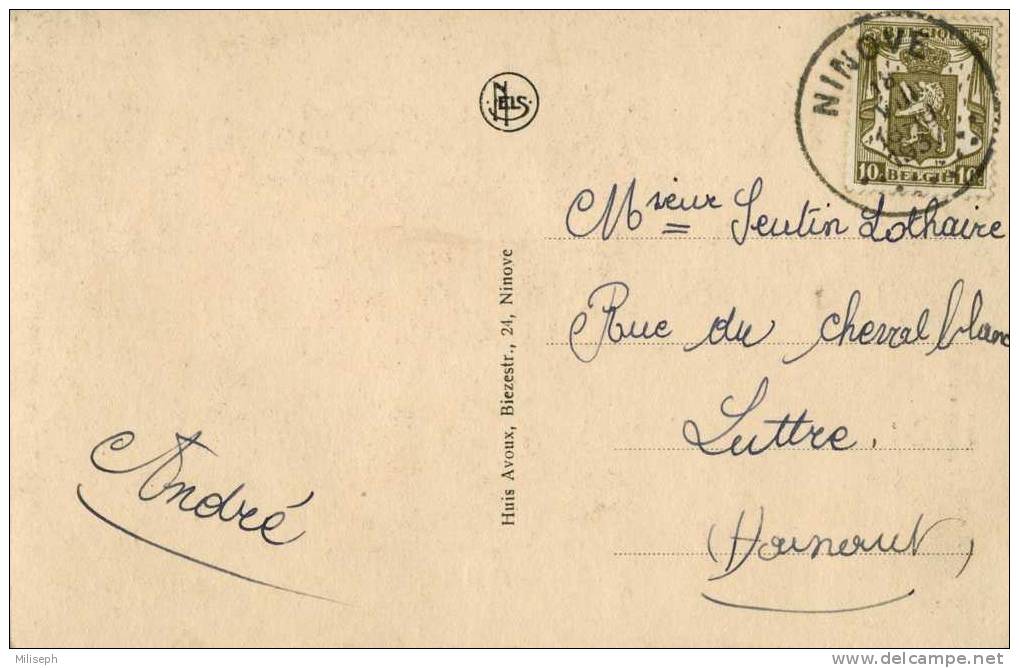 NELS
NINOVE
BELGIQUE
10c BELGIE 10c
Msieur Seutin Lothaire
Rue du cheval blanc
Luttre.
(Hainaut)
André
Huis Avoux, Biezestr., 24, Ninove
Miliseph
www.delcampe.net